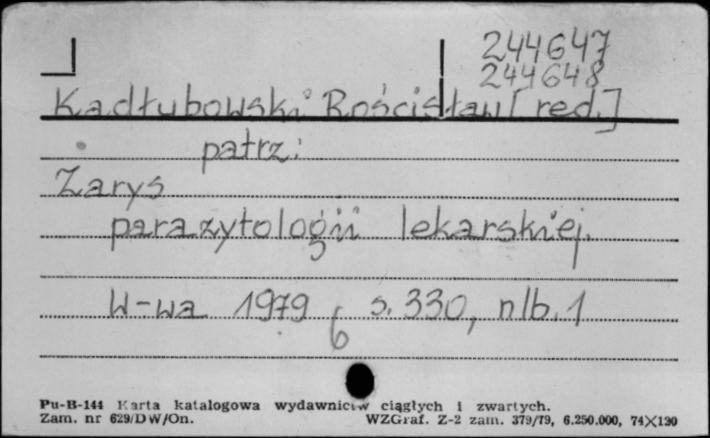 244647
244648
Kadłubowski Rościsław [red.]
patrz:
Zarys
parazytologii lekarskiej.
W-wa 1979 s. 330, nlb. 1
6
Pu-B-144 Karta katalogowa wydawnictw ciągłych i zwartych.
Zam. nr 629/DW/On. WZGraf. Z-2 zam. 379/79, 6.250.000, 74X120